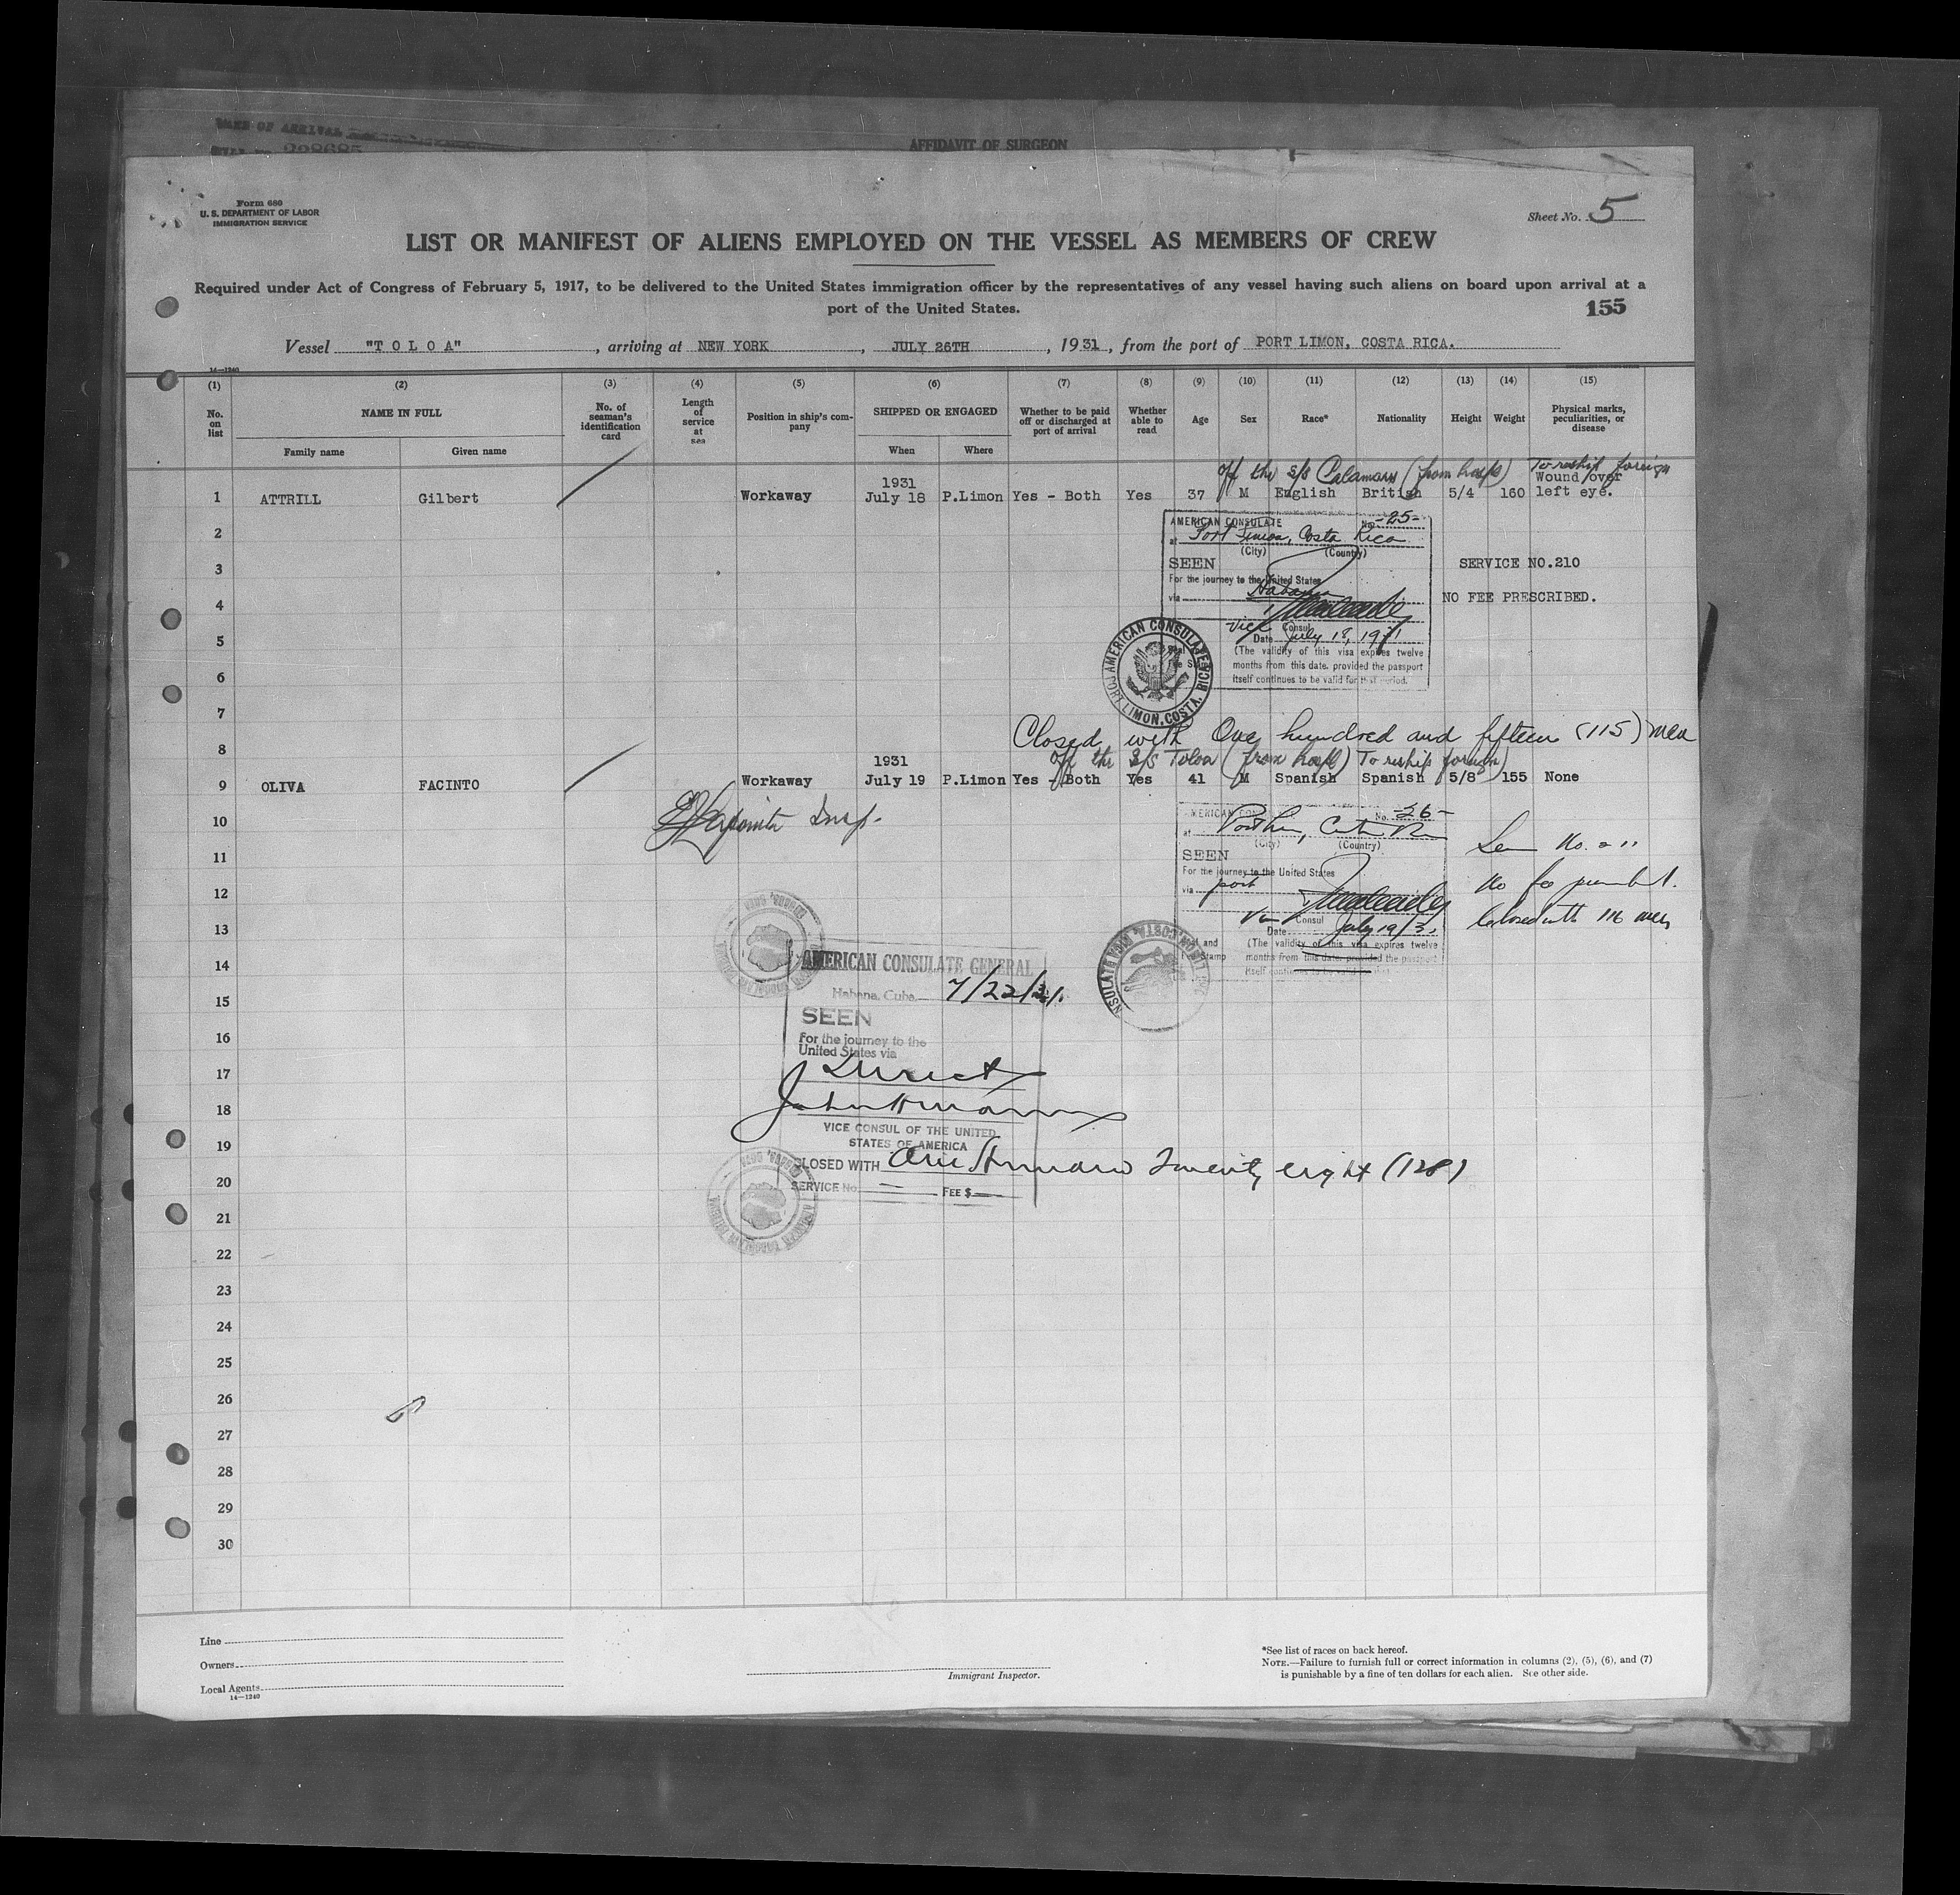 AFFIDAVIT OF SURGEON
Form 680
U. S. DEPARTMENT OF LABOR
IMMIGRATION SERVICE
Sheet No. 5
LIST OR MANIFEST OF ALIENS EMPLOYED ON THE VESSEL AS MEMBERS OF CREW
Required under Act of Congress of February 5, 1917, to be delivered to the United States immigration officer by the representatives of any vessel having such aliens on board upon arrival at a
port of the United States.
155
Vessel "T O L O A", arriving at NEW YORK, JULY 26TH, 1931, from the port of PORT LIMON, COSTA RICA.
14—1240
(1) (2) (3) (4) (5) (6) (7) (8) (9) (10) (11) (12) (13) (14) (15)
No. on list
NAME IN FULL
Family name
Given name
No. of seaman's identification card
Length of service at sea
Position in ship's company
SHIPPED OR ENGAGED
When
Where
Whether to be paid off or discharged at port of arrival
Whether able to read
Age
Sex
Race*
Nationality
Height
Weight
Physical marks, peculiarities, or disease
off the S/S Calamares (from hospl) To reship foreign
1 ATTRILL Gilbert Workaway 1931 July 18 P.Limon Yes - Both Yes 37 M English British 5/4 160 Wound over left eye.
2
3
4
5
6
7
8
AMERICAN CONSULATE No. -25-
at Port Limon, Costa Rica
(City) (Country)
SEEN
For the journey to the United States
via Habana
Vice Consul
Date July 18, 1931
(The validity of this visa expires twelve
months from this date, provided the passport
itself continues to be valid for that period.
SERVICE NO.210
NO FEE PRESCRIBED.
AMERICAN CONSULATE
PORT LIMON, COSTA RICA
Closed with One hundred and fifteen (115) men
off the S/S Toloa (from hospl) To reship foreign
9 OLIVA FACINTO Workaway 1931 July 19 P.Limon Yes - Both Yes 41 M Spanish Spanish 5/8 155 None
Insp.
10
11
12
13
14
15
16
17
18
19
20
21
22
23
24
25
26
27
28
29
30
No. -26-
(City) (Country)
SEEN
For the journey to the United States
via port
Consul
Date July 19/31
(The validity of this visa expires twelve
months from this date, provided the passport
No fee
Closed with 116 men
AMERICAN CONSULATE GENERAL
Habana, Cuba. 7/22/31.
SEEN
For the journey to the
United States via
Direct
VICE CONSUL OF THE UNITED
STATES OF AMERICA
CLOSED WITH One Hundred Twenty eight (128)
SERVICE No. — FEE $ —
Line
Owners
Local Agents
14—1240
Immigrant Inspector.
*See list of races on back hereof.
NOTE.—Failure to furnish full or correct information in columns (2), (5), (6), and (7)
is punishable by a fine of ten dollars for each alien. See other side.